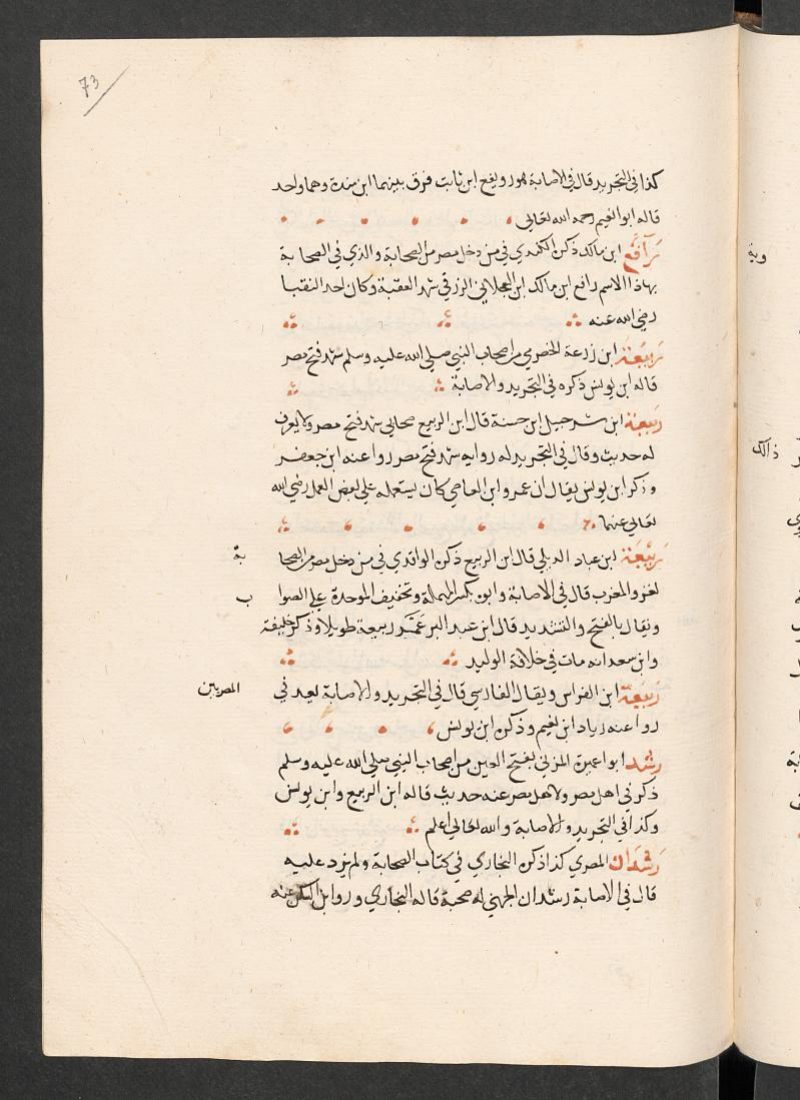 73
كذا في التجريد قال في الاصابة هو رويفع ابن ثابت فرق بينهما ابن مندة وهما واحد
قاله ابو النعيم رحمه الله تعالى
رآفع ابن مالك ذكره الكندي في من دخل مصر من الصحابة والذي في الصحا بة
بهاذا الاسم رافع ابن مالك ابن العجلاني الزرقي شهد العقبة وكان احد النقبا
رضي الله عنه
ربيعة ابن زرعة الحضرمي من اصحاب النبي صلى الله عليه وسلم شهد فتح مصر
قاله ابن يونس ذكره في التجريد والاصابة
ربيعة ابن شرحبيل ابن حسنة قال ابن الربيع صحابي شهد فتح مصر ولا يعرف
له حديث وقال في التجريد له رواية شهد فتح مصر روا عنه ابن جعفر
وذكر ابن يونس يقال ان عمرو ابن العاصي كان يستعمله على بعض العمل رضي الله
تعالى عنهما
ربيعة ابن عباد الديلي قال ابن الربيع ذكره الواقدي في من دخل مصر من الصحا بة
لغزو المغرب قال في الاصابة وابوه بكسر المهملة وتخفيف الموحدة على الصوا ب
ويقال بالفتح والتشديد قال ابن عبد البر عمّر ربيعة طويلا وذكر خليفة
وابن سعد انه مات في خلافة الوليد
ربيعة ابن الفراس ويقال الفارسي قال في التجريد والاصابة يعد في المصريين
روا عنه زياد ابن نعيم وذكره ابن يونس
رشد ابو اعميرة المزني بفتح العين من اصحاب النبي صلى الله عليه وسلم
ذكر في اهل مصر ولاهل مصر عنه حديث قاله ابن الربيع وابن يونس
وكذا في التجريد والاصابة والله تعالى اعلم
رشدان المصري كذا ذكره البخاري في كتاب الصحابة ولم يزد عليه
قال في الاصابة رشدان الجهني له صحبة قاله البخاري وروا ابن السكن عنه